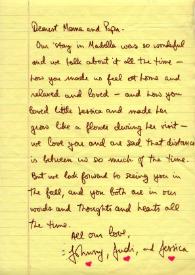 Dearest Mama and Papa -
Our stay in Madella was so wonderful
and we talk about it all the time -
how you made us feel at home and
relaxed and loved - and how you
loved little Jessica and made her
grow like a flower during her visit -
we love you and are sad that distance
is between us so much of the time.
But we look forward to seeing you in
the fall, and you both are in our
words and thoughts and hearts all
the time.
All our love,
Johnny, Judi, and Jessica